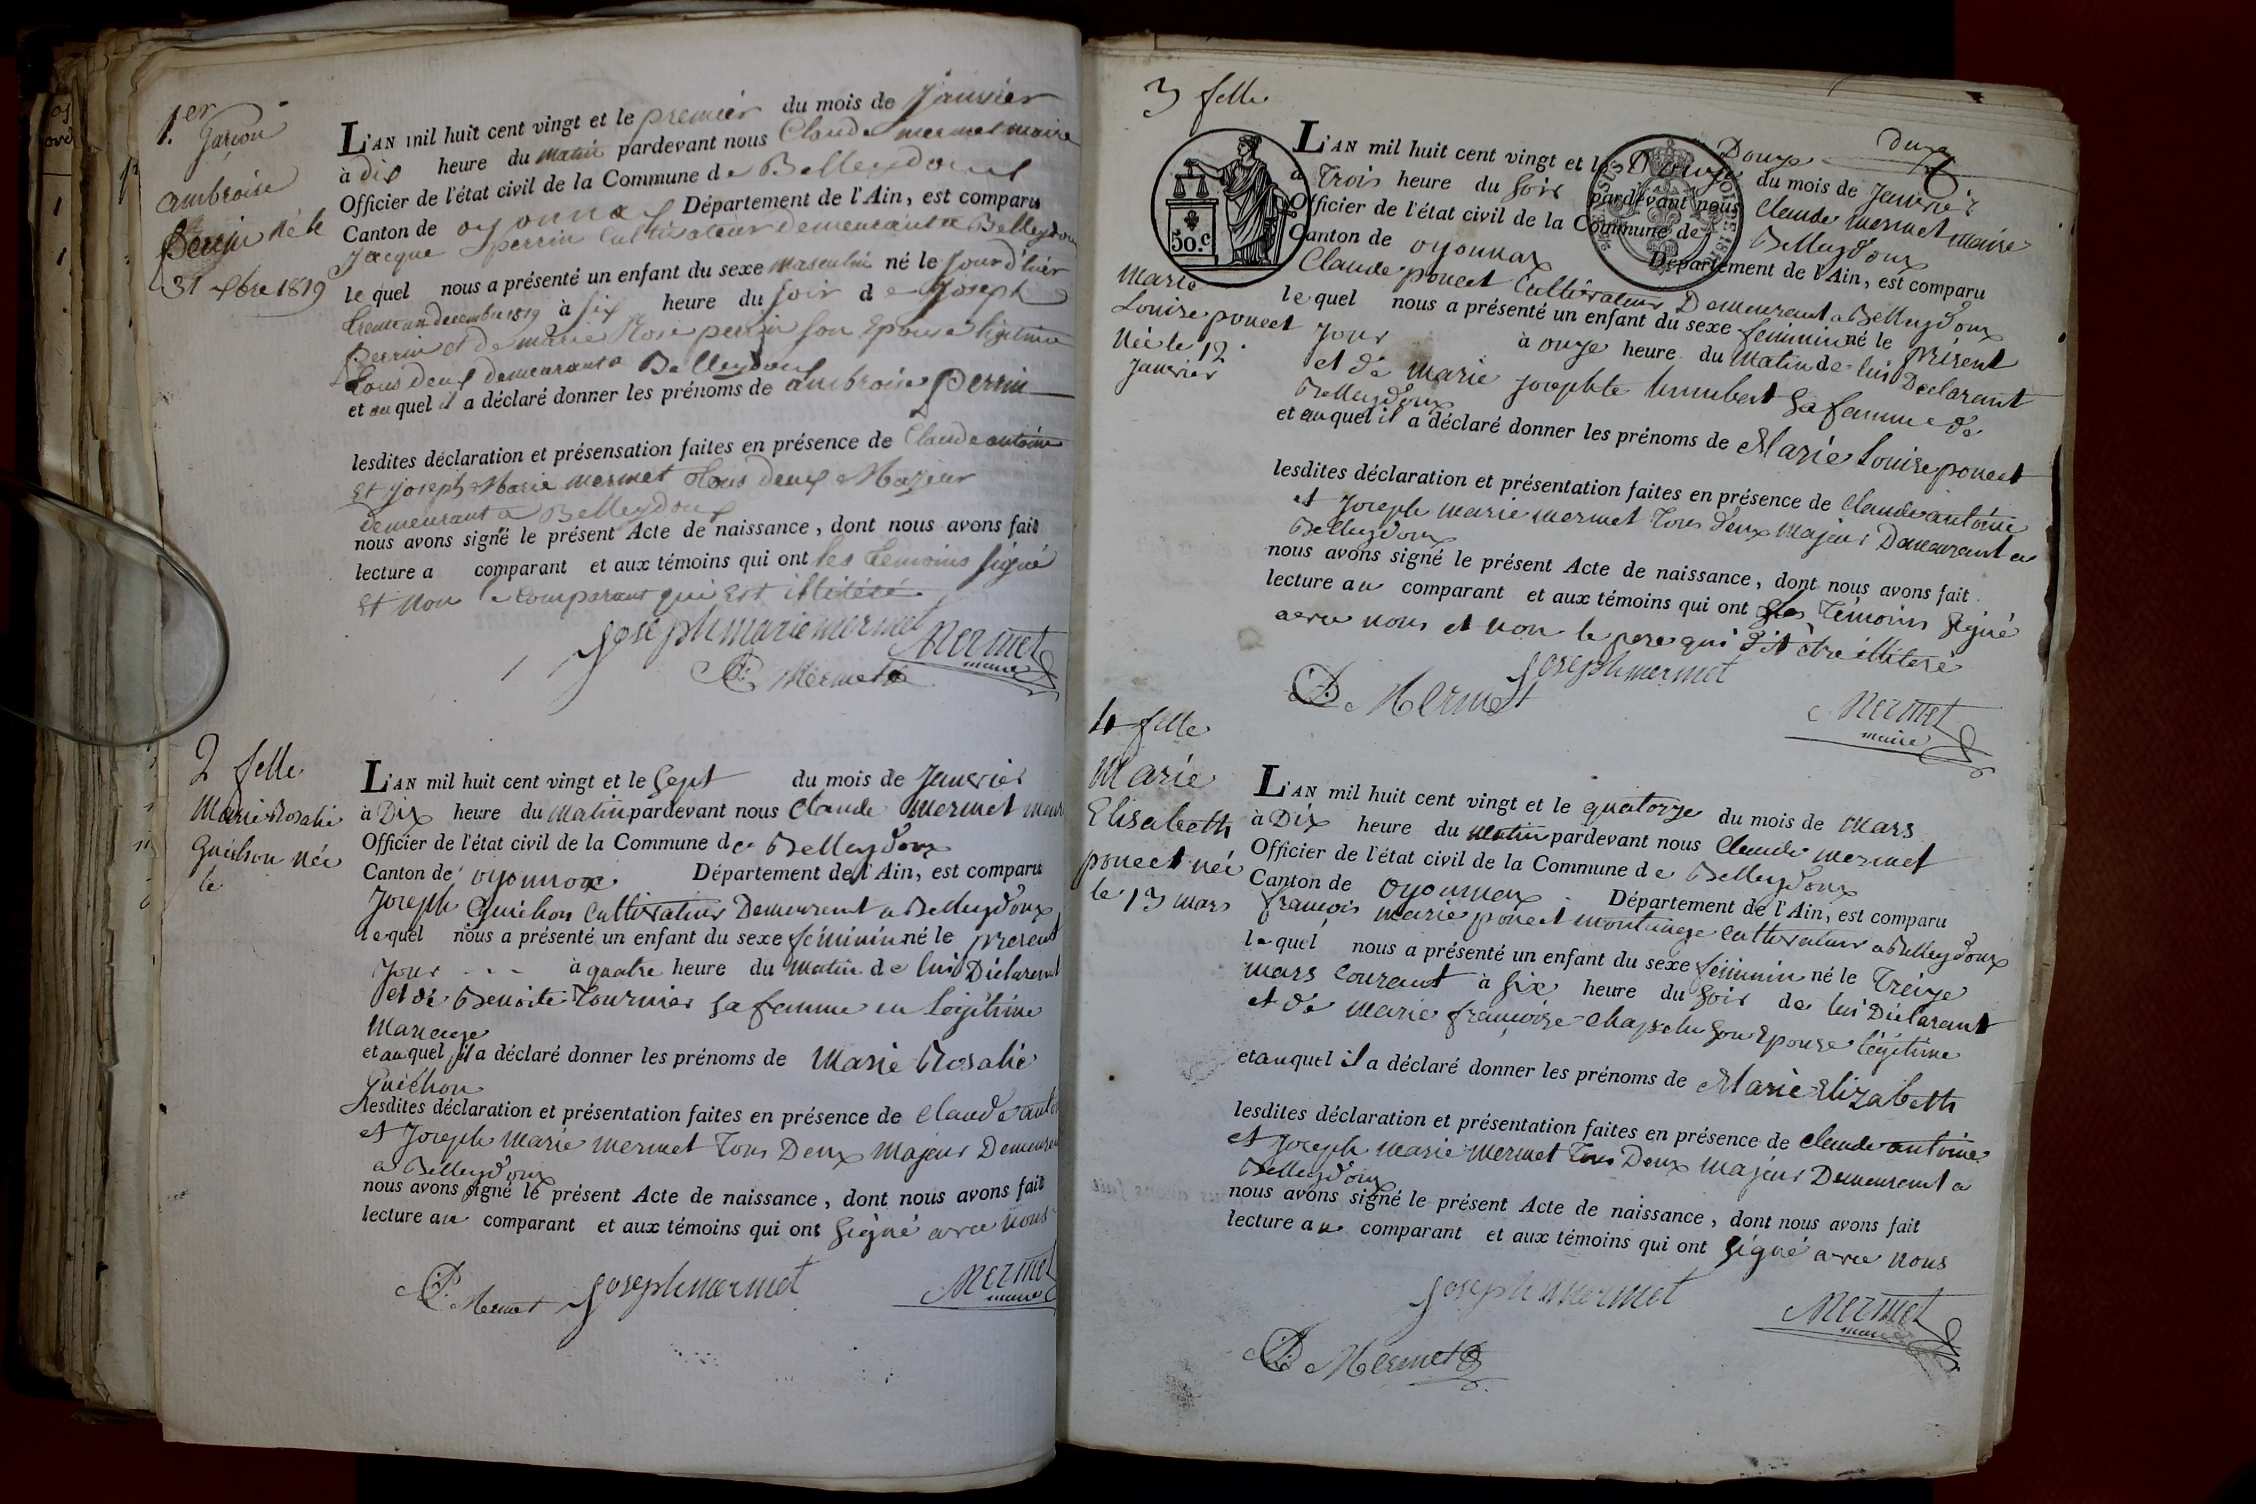 1.er
Garçon
ambroise
perrin né le
31 xbre 1819
L'AN mil huit cent vingt et le premier du mois de Janvier
à dix heure du matin pardevant nous Claude mermet maire
Officier de l'état civil de la Commune de Belleydoux
Canton de oyonnax Département de l'Ain, est comparu
Jacque perrin Cultivateur demeurant a Belleydoux
le quel nous a présenté un enfant du sexe masculin né le jour d'hier
trente un decembre 1819 à six heure du soir de Joseph
perrin et de marie Rose perrin son Epouse légitime
tous deux demeurant a Belleydoux
et au quel il a déclaré donner les prénoms de ambroise perrin
lesdites déclaration et présensation faites en présence de Claude antoine
Et joseph Marie mermet tous deux Majeur
demeurant a Belleydoux
nous avons signé le présent Acte de naissance, dont nous avons fait
lecture a comparant et aux témoins qui ont les temoins signé
Et non le comparant qui Est illitéré
joseph marie mermet Mermet
maire
Mermet
2 fille
Marie Rosalie
Guichon née
le
L'AN mil huit cent vingt et le Sept du mois de Janvier
à Dix heure du Matin pardevant nous Claude mermet maire
Officier de l'état civil de la Commune de Belleydoux
Canton de oyonnax Département de l'Ain, est comparu
Joseph Guichon Cultivateur Demeurant a Belleydoux
le quel nous a présenté un enfant du sexe féminin né le present
Jour - - - à quatre heure du matin de lui Déclarant
et de Benoite Tournier sa femme en Légitime
Mariage
et au quel il a déclaré donner les prénoms de Marie Rosalie
Guichon
lesdites déclaration et présentation faites en présence de Claude anto
et Joseph Marie mermet Tous Deux majeur Demeurant
a Belleydoux
nous avons signé le présent Acte de naissance, dont nous avons fait
lecture au comparant et aux témoins qui ont Signé avec nous
Mermet joseph mermet Mermet
maire
3 fille
Marie
Louise poncet
Née le 12
Janvier
50.c
deux
Douze
L'AN mil huit cent vingt et le Douze du mois de Janvier
à Trois heure du Soir pardevant nous Claude mermet maire
Officier de l'état civil de la Commune de Belleydoux
Canton de oyonnax Département de l'Ain, est comparu
Claude poncet Cultivateur Demeurant a Belleydoux
le quel nous a présenté un enfant du sexe feminin né le présent
Jour à onze heure du Matin de lui Déclarant
et de Marie josephte humbert sa femme de
Belleydoux
et au quel il a déclaré donner les prénoms de Marie Louise poncet
lesdites déclaration et présentation faites en présence de Claude antoine
et Joseph marie mermet Tous deux majeur Demeurant a
Belleydoux
nous avons signé le présent Acte de naissance, dont nous avons fait
lecture au comparant et aux témoins qui ont les Témoins Signé
avec nous et non le pere qui dit être illiteré
joseph mermet
Mermet Mermet
maire
4 fille
Marie
Elisabeth
poncet née
le 13 mars
L'AN mil huit cent vingt et le quatorze du mois de Mars
à Dix heure du matin pardevant nous Claude mermet
Officier de l'état civil de la Commune de Belleydoux
Canton de Oyonnax Département de l'Ain, est comparu
françois marie poncet montange cultivateur a Belleydoux
le quel nous a présenté un enfant du sexe féminin né le Treize
mars Courant à Six heure du Soir de lui Déclarant
et de Marie françoise Chapelu son Epouse légitime
et au quel il a déclaré donner les prénoms de Marie Elizabeth
lesdites déclaration et présentation faites en présence de Claude antoine
et Joseph Marie mermet Tous Deux majeur Demeurant a
Belleydoux
nous avons signé le présent Acte de naissance, dont nous avons fait
lecture au comparant et aux témoins qui ont Signé avec nous
joseph mermet Mermet
maire
Mermet